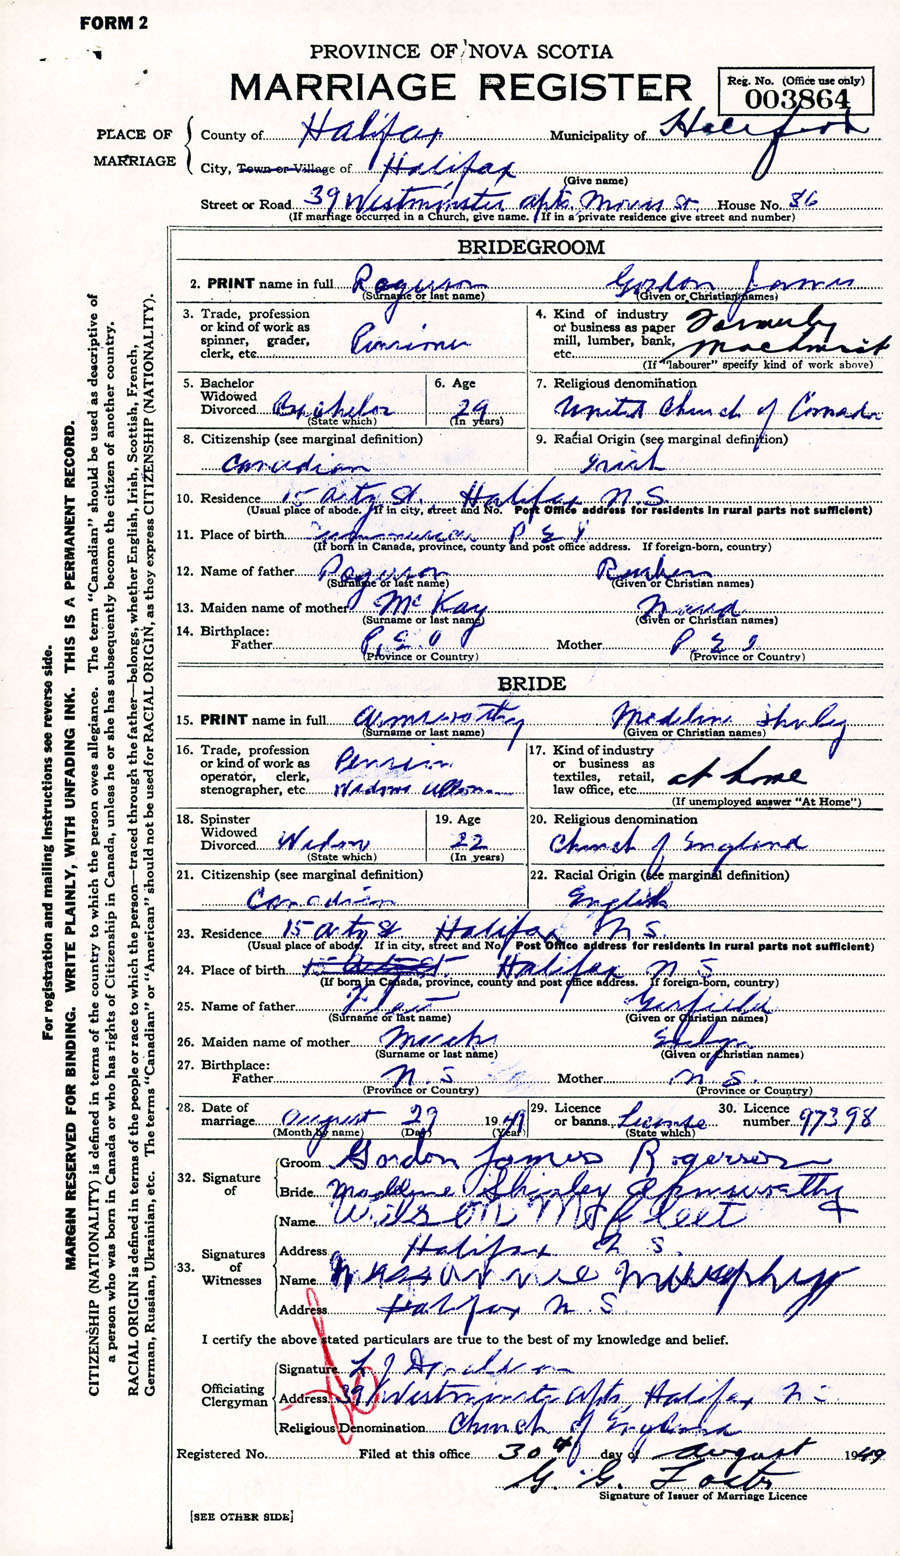 FORM 2
PROVINCE OF NOVA SCOTIA
MARRIAGE REGISTER
Reg. No. (Office use only)
003864
PLACE OF MARRIAGE
County of Halifax Municipality of
City, Town or Village of Halifax
(Give name)
Street or Road 39 Westminster apts. Morris St. House No. 86
(If marriage occurred in a Church, give name. If in a private residence give street and number)
BRIDEGROOM
2. PRINT name in full Rogerson Gordon James
(Surname or last name) (Given or Christian names)
3. Trade, profession or kind of work as spinner, grader, clerk, etc. Pensioner
4. Kind of industry or business as paper mill, lumber, bank, etc. Formerly Machinist
(If "labourer" specify kind of work above)
5. Bachelor Widowed Divorced Bachelor
(State which)
6. Age 29
(In years)
7. Religious denomination
United Church of Canada
8. Citizenship (see marginal definition)
Canadian
9. Racial Origin (see marginal definition)
Irish
10. Residence 15 Arty St. Halifax N.S.
(Usual place of abode. If in city, street and No. Post Office address for residents in rural parts not sufficient)
11. Place of birth P E I
(If born in Canada, province, county and post office address. If foreign-born, country)
12. Name of father Rogerson Reuben
(Surname or last name) (Given or Christian names)
13. Maiden name of mother McKay Maud
(Surname or last name) (Given or Christian names)
14. Birthplace:
Father P.E.I Mother P.E.I
(Province or Country) (Province or Country)
BRIDE
15. PRINT name in full Armsworthy Madeline Shirley
(Surname or last name) (Given or Christian names)
16. Trade, profession or kind of work as operator, clerk, stenographer, etc. Pension Widows
17. Kind of industry or business as textiles, retail, law office, etc. at home
(If unemployed answer "At Home")
18. Spinster Widowed Divorced Widow
(State which)
19. Age 22
(In years)
20. Religious denomination
Church of England
21. Citizenship (see marginal definition)
Canadian
22. Racial Origin (see marginal definition)
English
23. Residence 15 Arty St Halifax N.S.
(Usual place of abode. If in city, street and No. Post Office address for residents in rural parts not sufficient)
24. Place of birth 15 Arty St. Halifax N S
(If born in Canada, province, county and post office address. If foreign-born, country)
25. Name of father Garfield
(Surname or last name) (Given or Christian names)
26. Maiden name of mother Evelyn
(Surname or last name) (Given or Christian names)
27. Birthplace:
Father N.S Mother N.S.
(Province or Country) (Province or Country)
28. Date of marriage August 29 1949
(Month by name) (Day) (Year)
29. Licence or banns License
(State which)
30. Licence number 97398
32. Signature of
Groom Gordon James Rogerson
Bride Madeline Shirley Armsworthy
33. Signatures of Witnesses
Name Wilson
Address Halifax N.S.
Name Murphy
Address Halifax N.S.
I certify the above stated particulars are true to the best of my knowledge and belief.
Officiating Clergyman
Signature L J Donaldson
Address 39 Westminster Apts, Halifax
Religious Denomination Church of England
Registered No. Filed at this office 30th day of August 1949
G. G. Foster
Signature of Issuer of Marriage Licence
[SEE OTHER SIDE]
For registration and mailing instructions see reverse side.
MARGIN RESERVED FOR BINDING. WRITE PLAINLY, WITH UNFADING INK. THIS IS A PERMANENT RECORD.
CITIZENSHIP (NATIONALITY) is defined in terms of the country to which the person owes allegiance. The term "Canadian" should be used as descriptive of
a person who was born in Canada or who has rights of Citizenship in Canada, unless he or she has subsequently become the citizen of another country.
RACIAL ORIGIN is defined in terms of the people or race to which the person—traced through the father—belongs, whether English, Irish, Scottish, French,
German, Russian, Ukrainian, etc. The terms "Canadian" or "American" should not be used for RACIAL ORIGIN, as they express CITIZENSHIP (NATIONALITY).